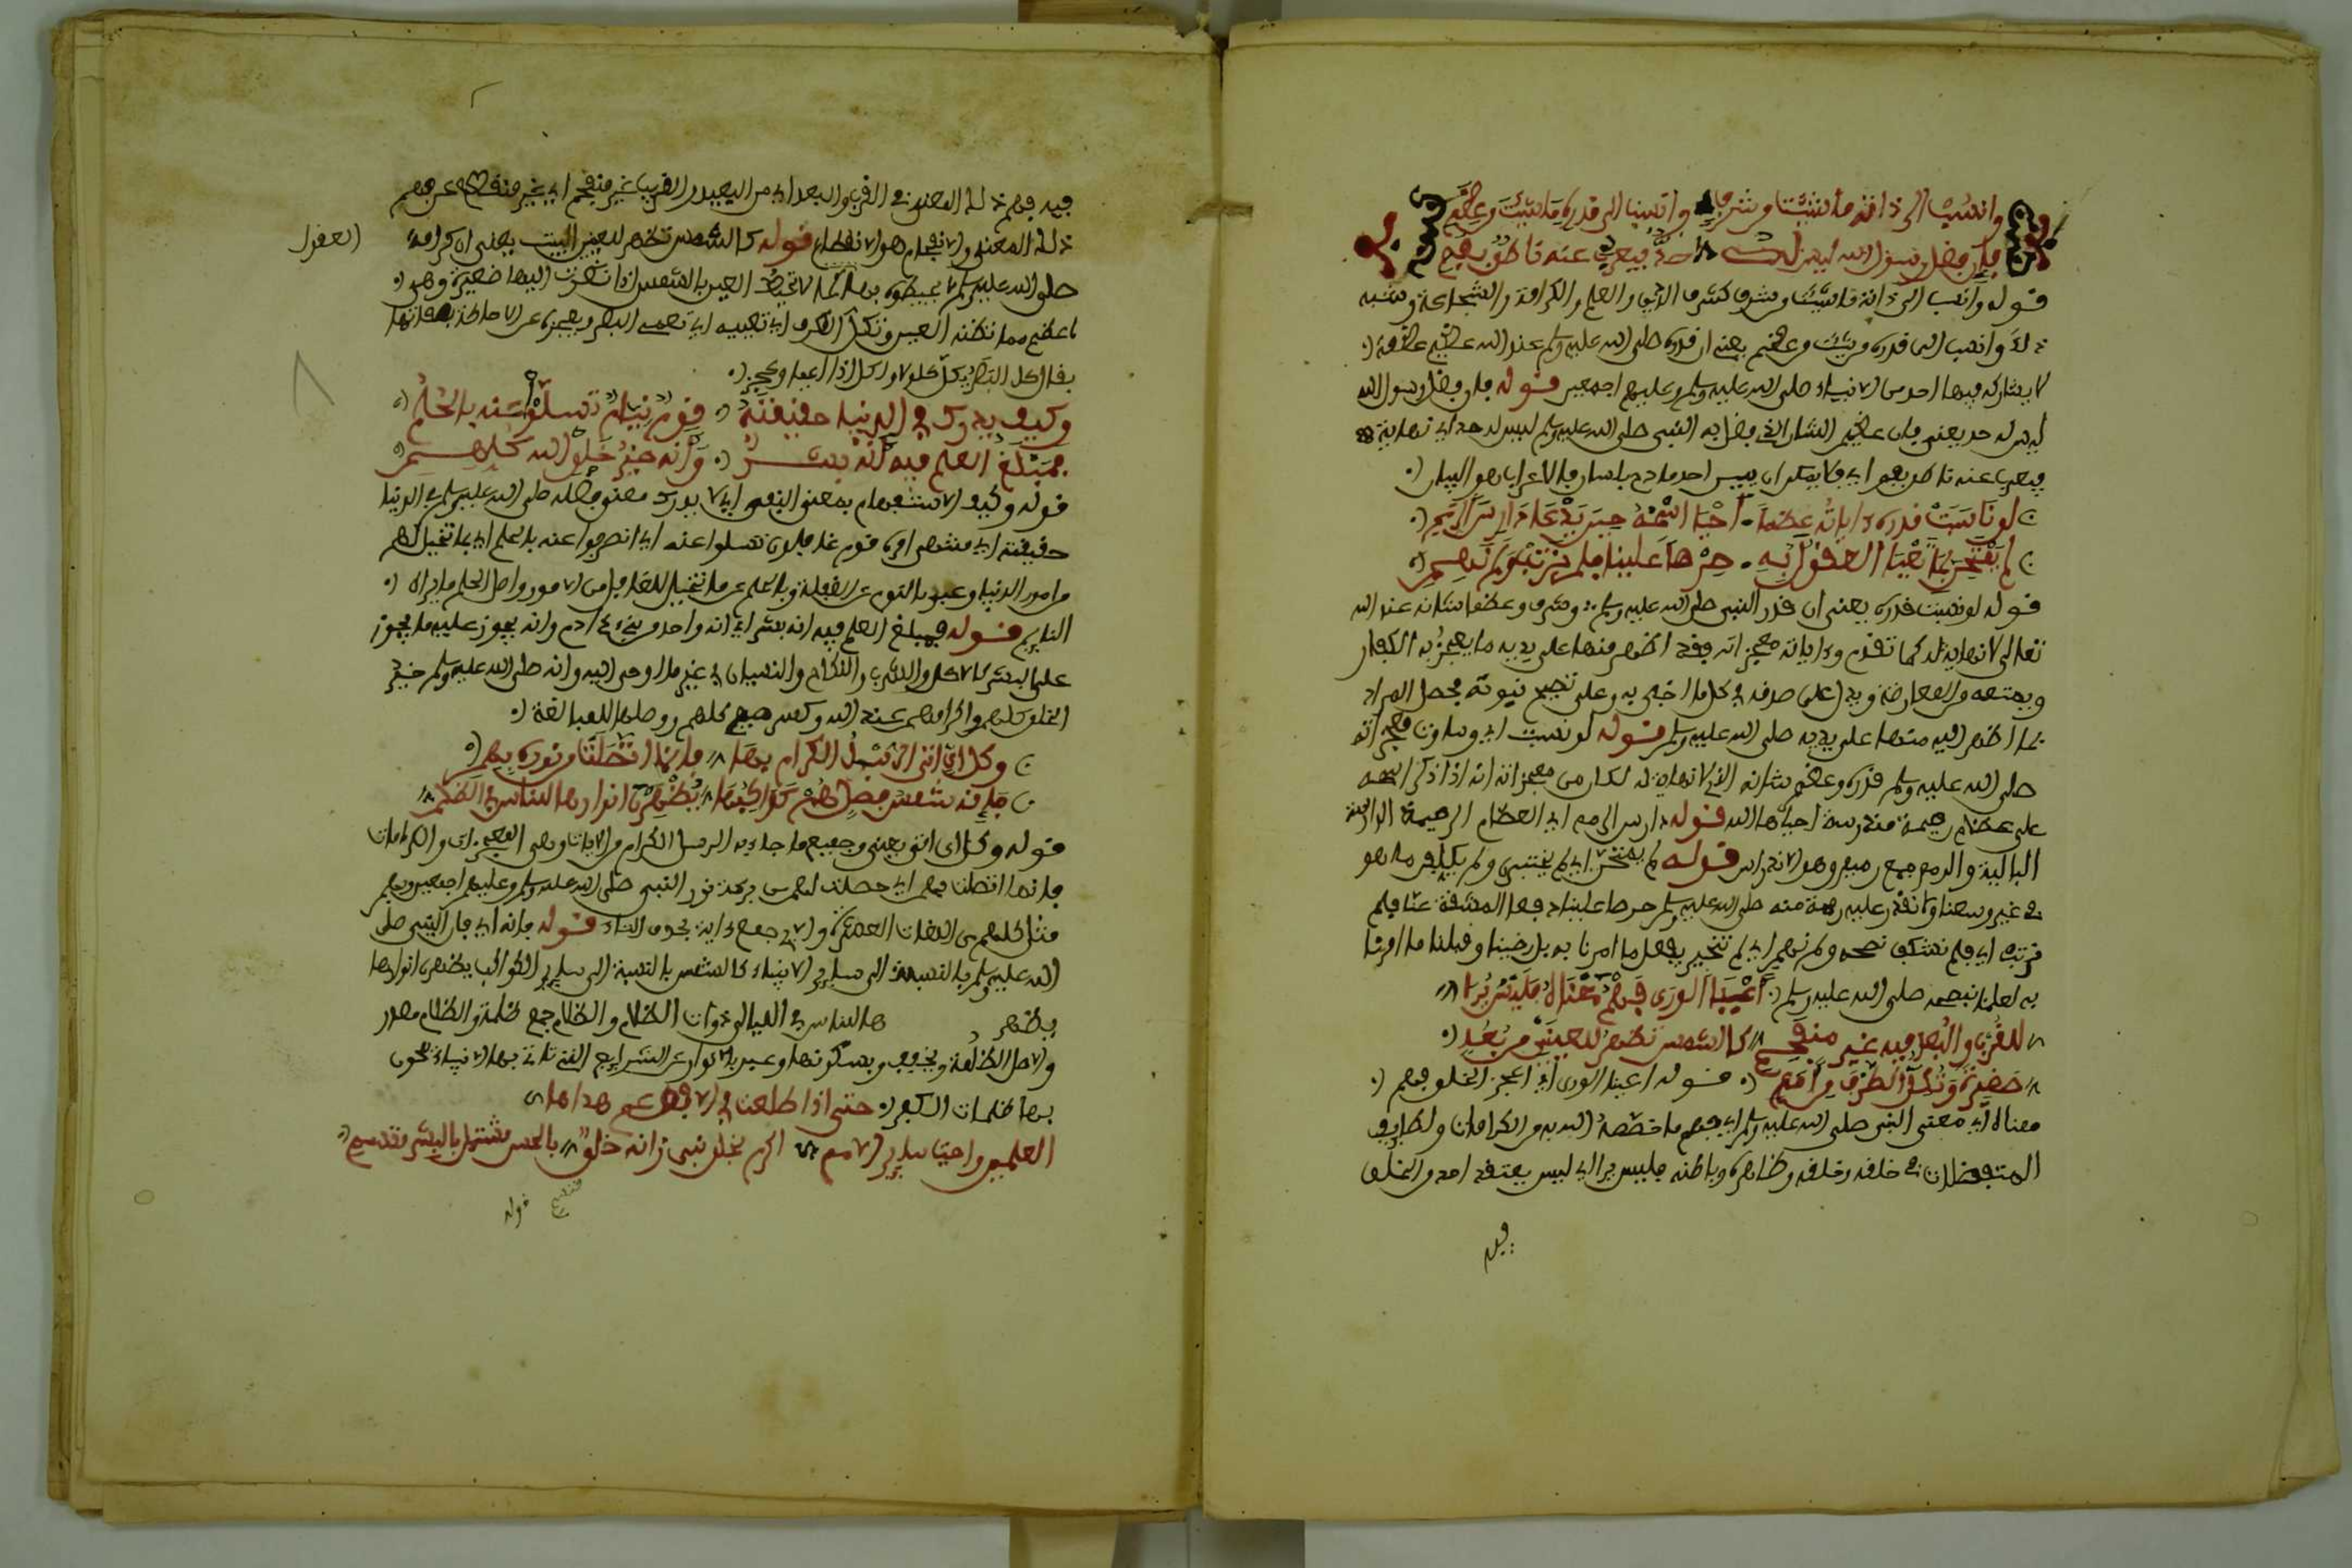 وانسب الى ذاته ما شئت من شرف وانسب الى قدره ما شئت من عظم
فان فضل رسول الله ليس له حد فيعرب عنه ناطق بفم
قوله وانسب الى ذاته ما شئت من شرف كشرف الدين والعلم والكرامة والشجاعة وشبه
ذلك وانسب الى قدره ما شئت من عظم يعني ان قدره صلى الله عليه وسلم عند الله عظيم عظمة
لا يشاركه فيها احد من الانبياء صلى الله عليه وسلم وعليهم اجمعين قوله فان فضل رسول الله
ليس له حد يعني فان عظيم الشان الذي فضل به النبي صلى الله عليه وسلم ليس له حد اي نهاية
فيعرب عنه ناطق بفم اي فلا يمكن ان يبين احد مادح بلسان والاعراب هو البيان
لو ناسبت قدره ءاياته عظما احيا اسمه حين يدعى دارس الرمم
لم يمتحنا بما تعيا العقول به حرصا علينا فلم نرتب ولم نهم
قوله لو ناسبت قدره يعني ان قدر النبي صلى الله عليه وسلم وشرف وعظم شانه عند الله
تعالى لا نهاية له كما تقدم وءاياته معجزاته وقد اظهر منها على يديه ما يعجز به الكفار
ويمنعه من المعارضة ويدل على صدقه في كل ما اخبر به وعلى تصحيح نبوته فحصل المراد
بما اظهر الله منها على يديه صلى الله عليه وسلم قوله لو ناسبت اي وساوت معجزاته
صلى الله عليه وسلم قدره وعظم شانه الذي لا نهاية له لكان من معجزاته انه اذا ذكر اسمه
على عظام رميمة مندرسة احياها الله قوله دارس الرمم اي العظام الرميمة الدارسة
البالية والرمم جمع رميم وهو الاندراس قوله لم يمتحنا اي لم يختبرنا ولم يكلفنا ما هو
في غير وسعنا ولا نقدر عليه رحمة منه صلى الله عليه وسلم حرصا علينا دفعا للمشقة عنا فلم
نرتب اي فلم نشك في نصحه ولم نهم اي لم نتحير بفعل ما امرنا به بل رضينا وقبلنا ما امرنا
به لعلمنا بنصحه صلى الله عليه وسلم اعيا الورى فهم معناه فليس يرى
للقرب والبعد فيه غير منفحم كالشمس تظهر للعينين من بعد
صغيرة وتكل الطرف من امم قوله اعيا الورى اي اعجز الخلق فهم
معناه اي معنى النبي صلى الله عليه وسلم اي فهم ما خصصه الله به من الكرامات ولطايف
المتفضلات في خلقه وخلقه وظاهره وباطنه فليس يرى اي ليس يعتقد احد من الخلق
فيه
فيه فهم ذلك المعنى في القرب والبعد اي من البعيد والقريب غير منفحم اي غير منقطع عن فهم
ذلك المعنى والانفحام هو الانقطاع قوله كالشمس تظهر للعينين البيت يعني ان كرامة
العقول
صلى الله عليه وسلم لا يحيطون بها كما لا تحيط العين بالشمس اذا نظرت اليها صغيرة وهي
اعظم مما تظنه العين وتكل الطرف اي تعييه اي تعمي البصر ويعجز عن الاحاطة بصفاتها
يقال كل البصر يكل كلولا وكل اذا اعيا وعجز
وكيف يدرك في الدنيا حقيقته قوم نيام تسلوا عنه بالحلم
فمبلغ العلم فيه انه بشر وانه خير خلق الله كلهم
قوله وكيف الاستفهام بمعنى النفي اي لا يدرك معنى فضله صلى الله عليه وسلم في الدنيا
حقيقته اي منتهى امره قوم غافلون تسلوا عنه اي انصرفوا عنه بالحلم اي بما تخيل لهم
من امور الدنيا وعبر بالنوم عن الغفلة وبالحلم عن ما تتخيل للغافل من الامور واصل الحلم ما يراه
النايم قوله فمبلغ العلم فيه انه بشر اي انه واحد من بني ءادم وانه يجوز عليه ما يجوز
على البشر كالاكل والشرب والنكاح والنسيان في غير ما اوحي اليه وانه صلى الله عليه وسلم خير
الخلق كلهم واكرامهم عند الله وكسر ميم كلهم ووصلها للمبالغة
وكل اي اتى الرسل الكرام بها فانما اتصلت من نوره بهم
فانه شمس فضل هم كواكبها يظهرن انوارها للناس في الظلم
قوله وكل اي اتى يعني وجميع ما جاء به الرسل الكرام من الايات وهي المعجزات والكرامات
فانما اتصلت بهم اي حصلت لهم من بركة نور النبي صلى الله عليه وسلم وعليهم اجمعين
قوله فانه اي فان النبي صلى
الله عليه وسلم بالنسبة الى ساير الانبياء كالشمس بالنسبة الى ساير الكواكب يظهرن انوارها
يظهر ها للناس في الليالي ذوات الظلام والظلام جمع ظلمة والظلام مصدر
بها ظلمات الكفر حتى اذا طلعت في الافق عم هداها
العلمين واحيا ساير الامم اكرم بخلق نبي زانه خلق بالحسن مشتمل بالبشر متسم
قوله